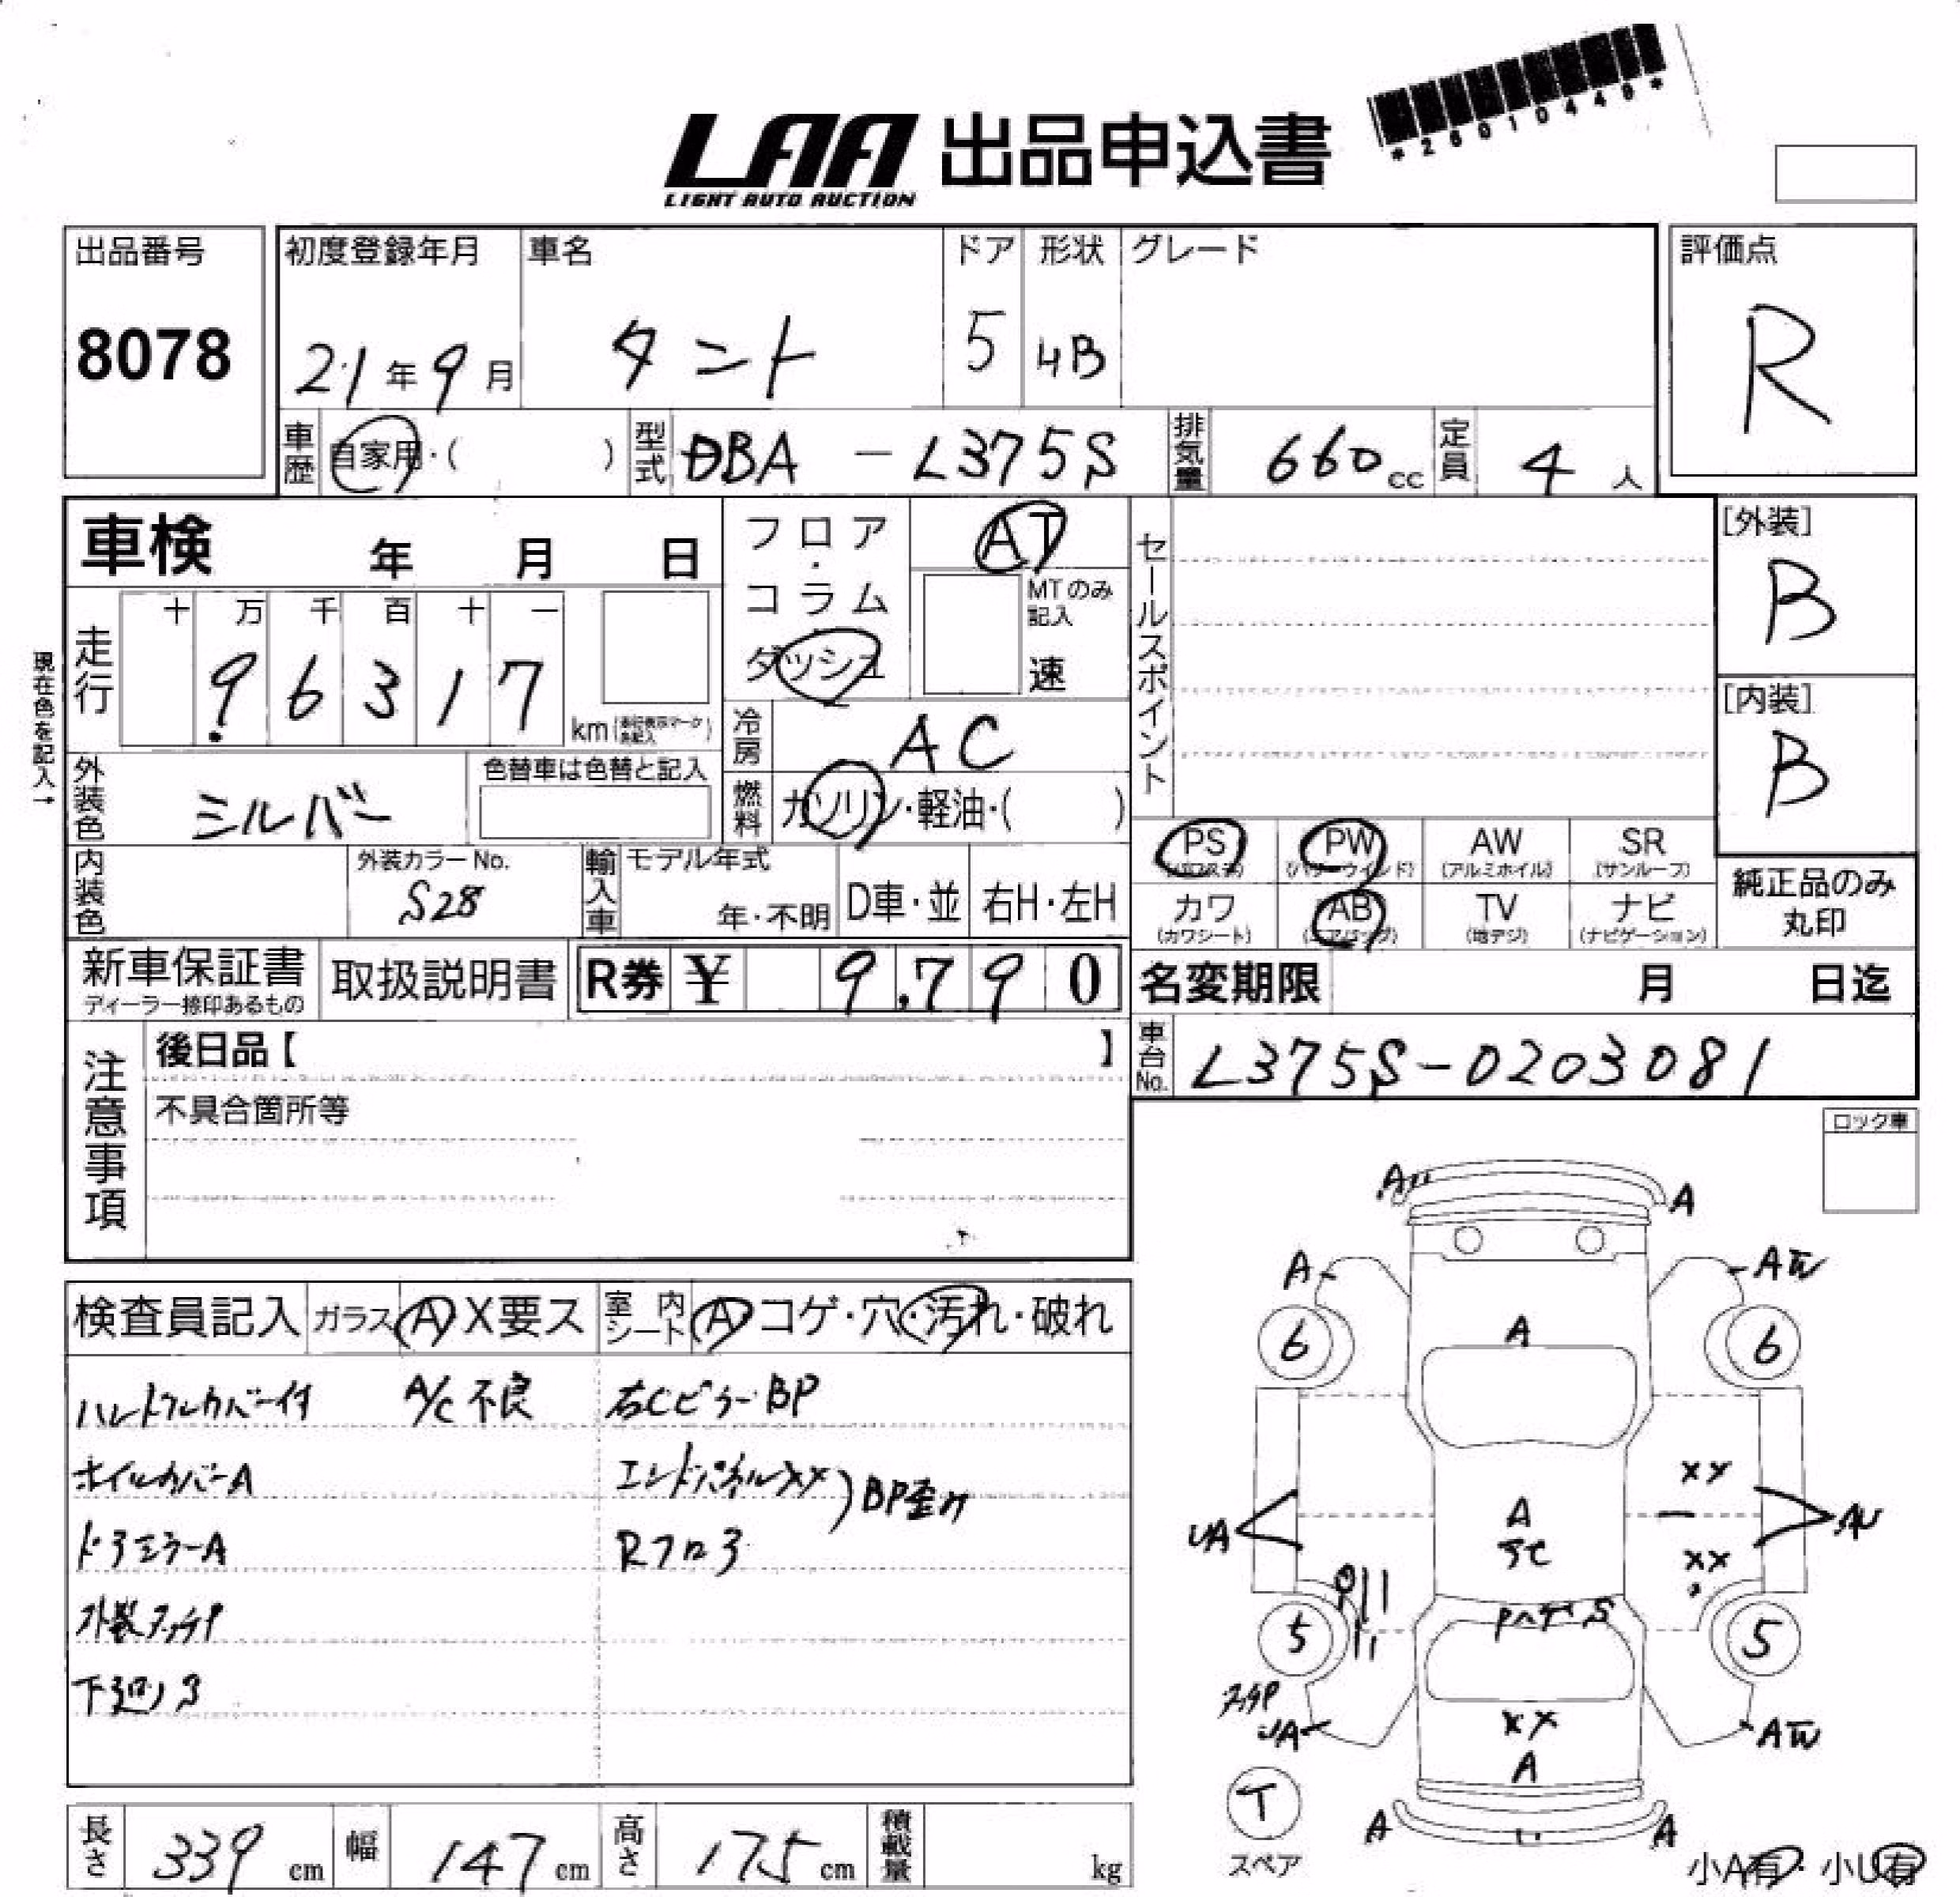 *26010449*
LAA 出品申込書
LIGHT AUTO AUCTION
出品番号
8078
初度登録年月
21年9月
車名
タント
ドア
5
形状
4B
グレード
評価点
R
車歴 自家用・( )
型式 DBA-L375S
排気量 660cc
定員 4人
車検 年 月 日
フロア・コラム ダッシュ
AT
MTのみ記入
速
セールスポイント
[外装]
B
[内装]
B
現在色を記入→
走行
十 万 千 百 十 一
9 6 3 1 7
km
冷房 AC
燃料 ガソリン・軽油・( )
外装色 シルバー
色替車は色替と記入
内装色
外装カラーNo.
S28
輸入車
モデル年式
年・不明
D車・並
右H・左H
PS
PW (パワーウインド)
AW (アルミホイル)
SR (サンルーフ)
カワ (カワシート)
AB (エアバッグ)
TV (地デジ)
ナビ (ナビゲーション)
純正品のみ
丸印
新車保証書
ディーラー捺印あるもの
取扱説明書
R券 ¥ 9,790
名変期限 月 日迄
車台No. L375S-0203081
注意事項
後日品【 】
不具合箇所等
ロック車
検査員記入
ガラス A X要ス
室内シート A・コゲ・穴・汚れ・破れ
ハンドルカバー付 A/C不良
ホイルカバーA
ドアミラーA
下廻りS
右CピラーBP
エンドパネルXX
BP歪み
Rフロア
A
A
A
AW
6
6
A
XX
UA
A
AU
XX
5
5
UA
XX
AW
A
T
スペア
A
A
小A有・小U有
長さ 339 cm
幅 147 cm
高さ 175 cm
積載量 kg